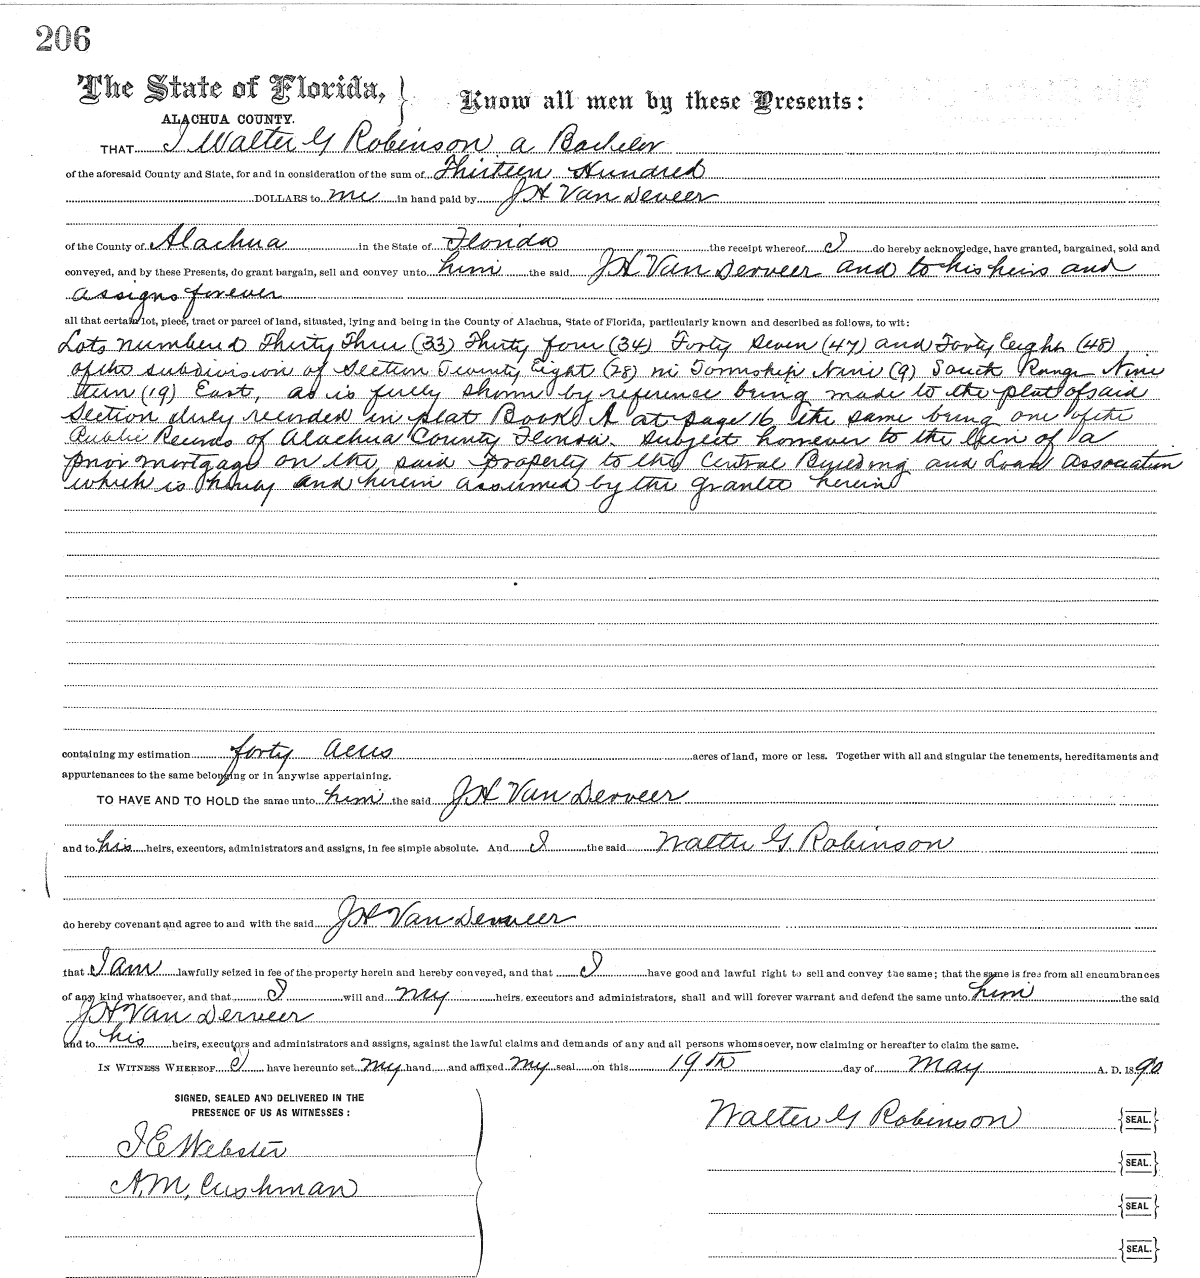 206
The State of Florida, } Know all men by these Presents:
ALACHUA COUNTY.
THAT I Walter G Robinson a Bachelor
of the aforesaid County and State, for and in consideration of the sum of Thirteen Hundred
DOLLARS to me in hand paid by J H Van Deveer
of the County of Alachua in the State of Florida the receipt whereof I do hereby acknowledge, have granted, bargained, sold and
conveyed, and by these Presents, do grant bargain, sell and convey unto him the said J H Van Derveer and to his heirs and
assigns forever
all that certain lot, piece, tract or parcel of land, situated, lying and being in the County of Alachua, State of Florida, particularly known and described as follows, to wit:
Lots numbered Thirty Three (33) Thirty four (34) Forty Seven (47) and Forty Eeight (48)
of the subdivision of Section Twenty Eight (28) in Township Nine (9) South Range Nine
teen (19) East, as is fully shown by reference being made to the plat of said
Section duly recorded in plat Book A at page 16 the same being one of the
Public Records of Alachua County Florida. Subject however to the lien of a
prior mortgage on the said property to the Central Building and Loan Association
which is hereby and herein assumed by the grantee herein
containing my estimation forty acres acres of land, more or less. Together with all and singular the tenements, hereditaments and
appurtenances to the same belonging or in anywise appertaining.
TO HAVE AND TO HOLD the same unto him the said J H Van Derveer
and to his heirs, executors, administrators and assigns, in fee simple absolute. And I the said Walter G. Robinson
do hereby covenant and agree to and with the said J H Van Derveer
that I am lawfully seized in fee of the property herein and hereby conveyed, and that I have good and lawful right to sell and convey the same; that the same is free from all encumbrances
of any kind whatsoever, and that I will and my heirs, executors and administrators, shall and will forever warrant and defend the same unto him the said
J H Van Derveer
and to his heirs, executors and administrators and assigns, against the lawful claims and demands of any and all persons whomsoever, now claiming or hereafter to claim the same.
IN WITNESS WHEREOF I have hereunto set my hand and affixed my seal on this 19th day of May A. D. 1890
SIGNED, SEALED AND DELIVERED IN THE
PRESENCE OF US AS WITNESSES:
Walter G Robinson {SEAL.}
I E Webster
{SEAL.}
A. M. Cushman
{SEAL}
{SEAL.}